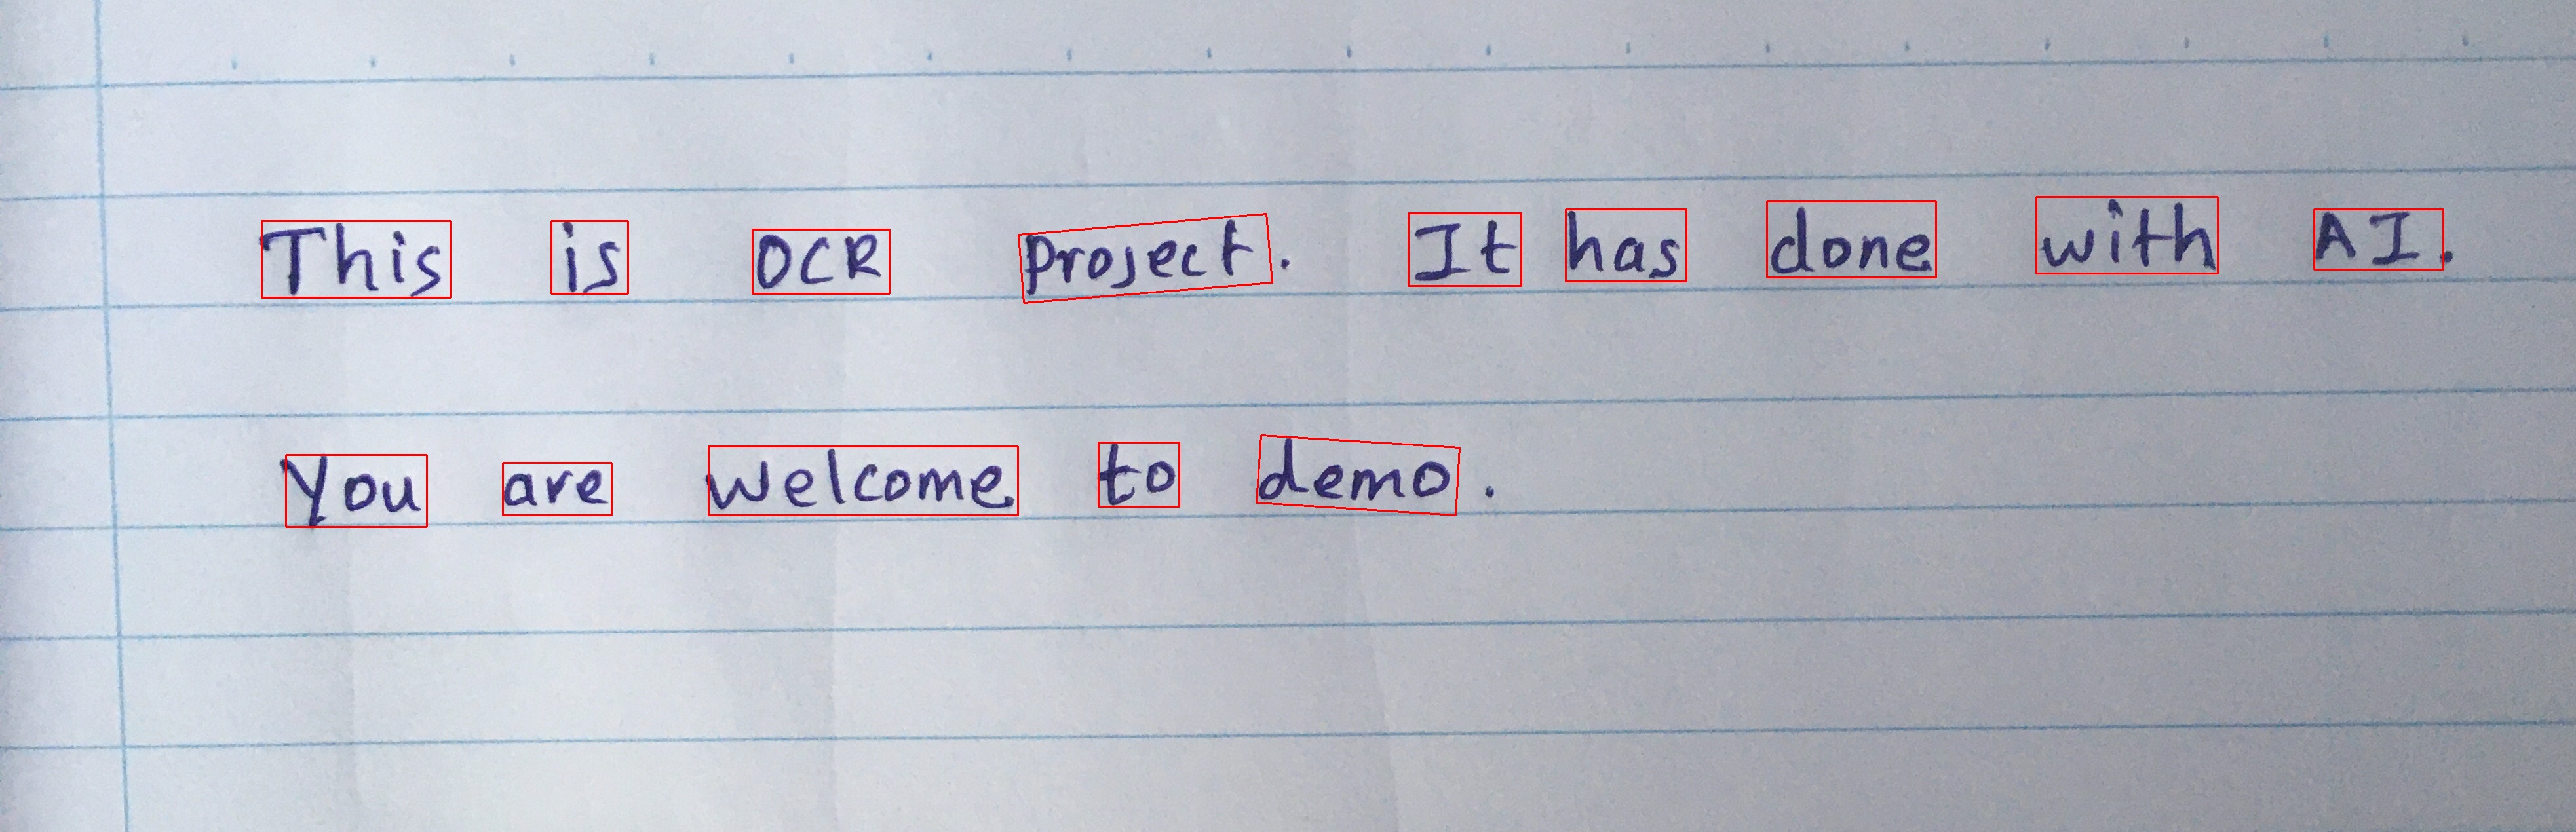 This is OCR project. It has done with AI.
You are welcome to demo.